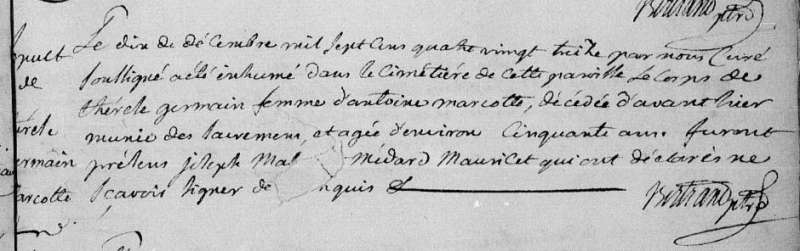 Bertrand ptre
Le dix de décembre mil sept cens quatre vingt treize par nous Curé
Sepult soussigné a été inhumé dans le cimetière de cette paroisse Le corps de
de thérèse germain femme d'antoine marcotte, décédée d'avant hier
munie des sacremens, et agée d'environ Cinquante ans. furent
ermain présens joseph Médard Mauricet qui ont déclarés ne
arcotte Sçavoir signer de nquis Bertrand ptre